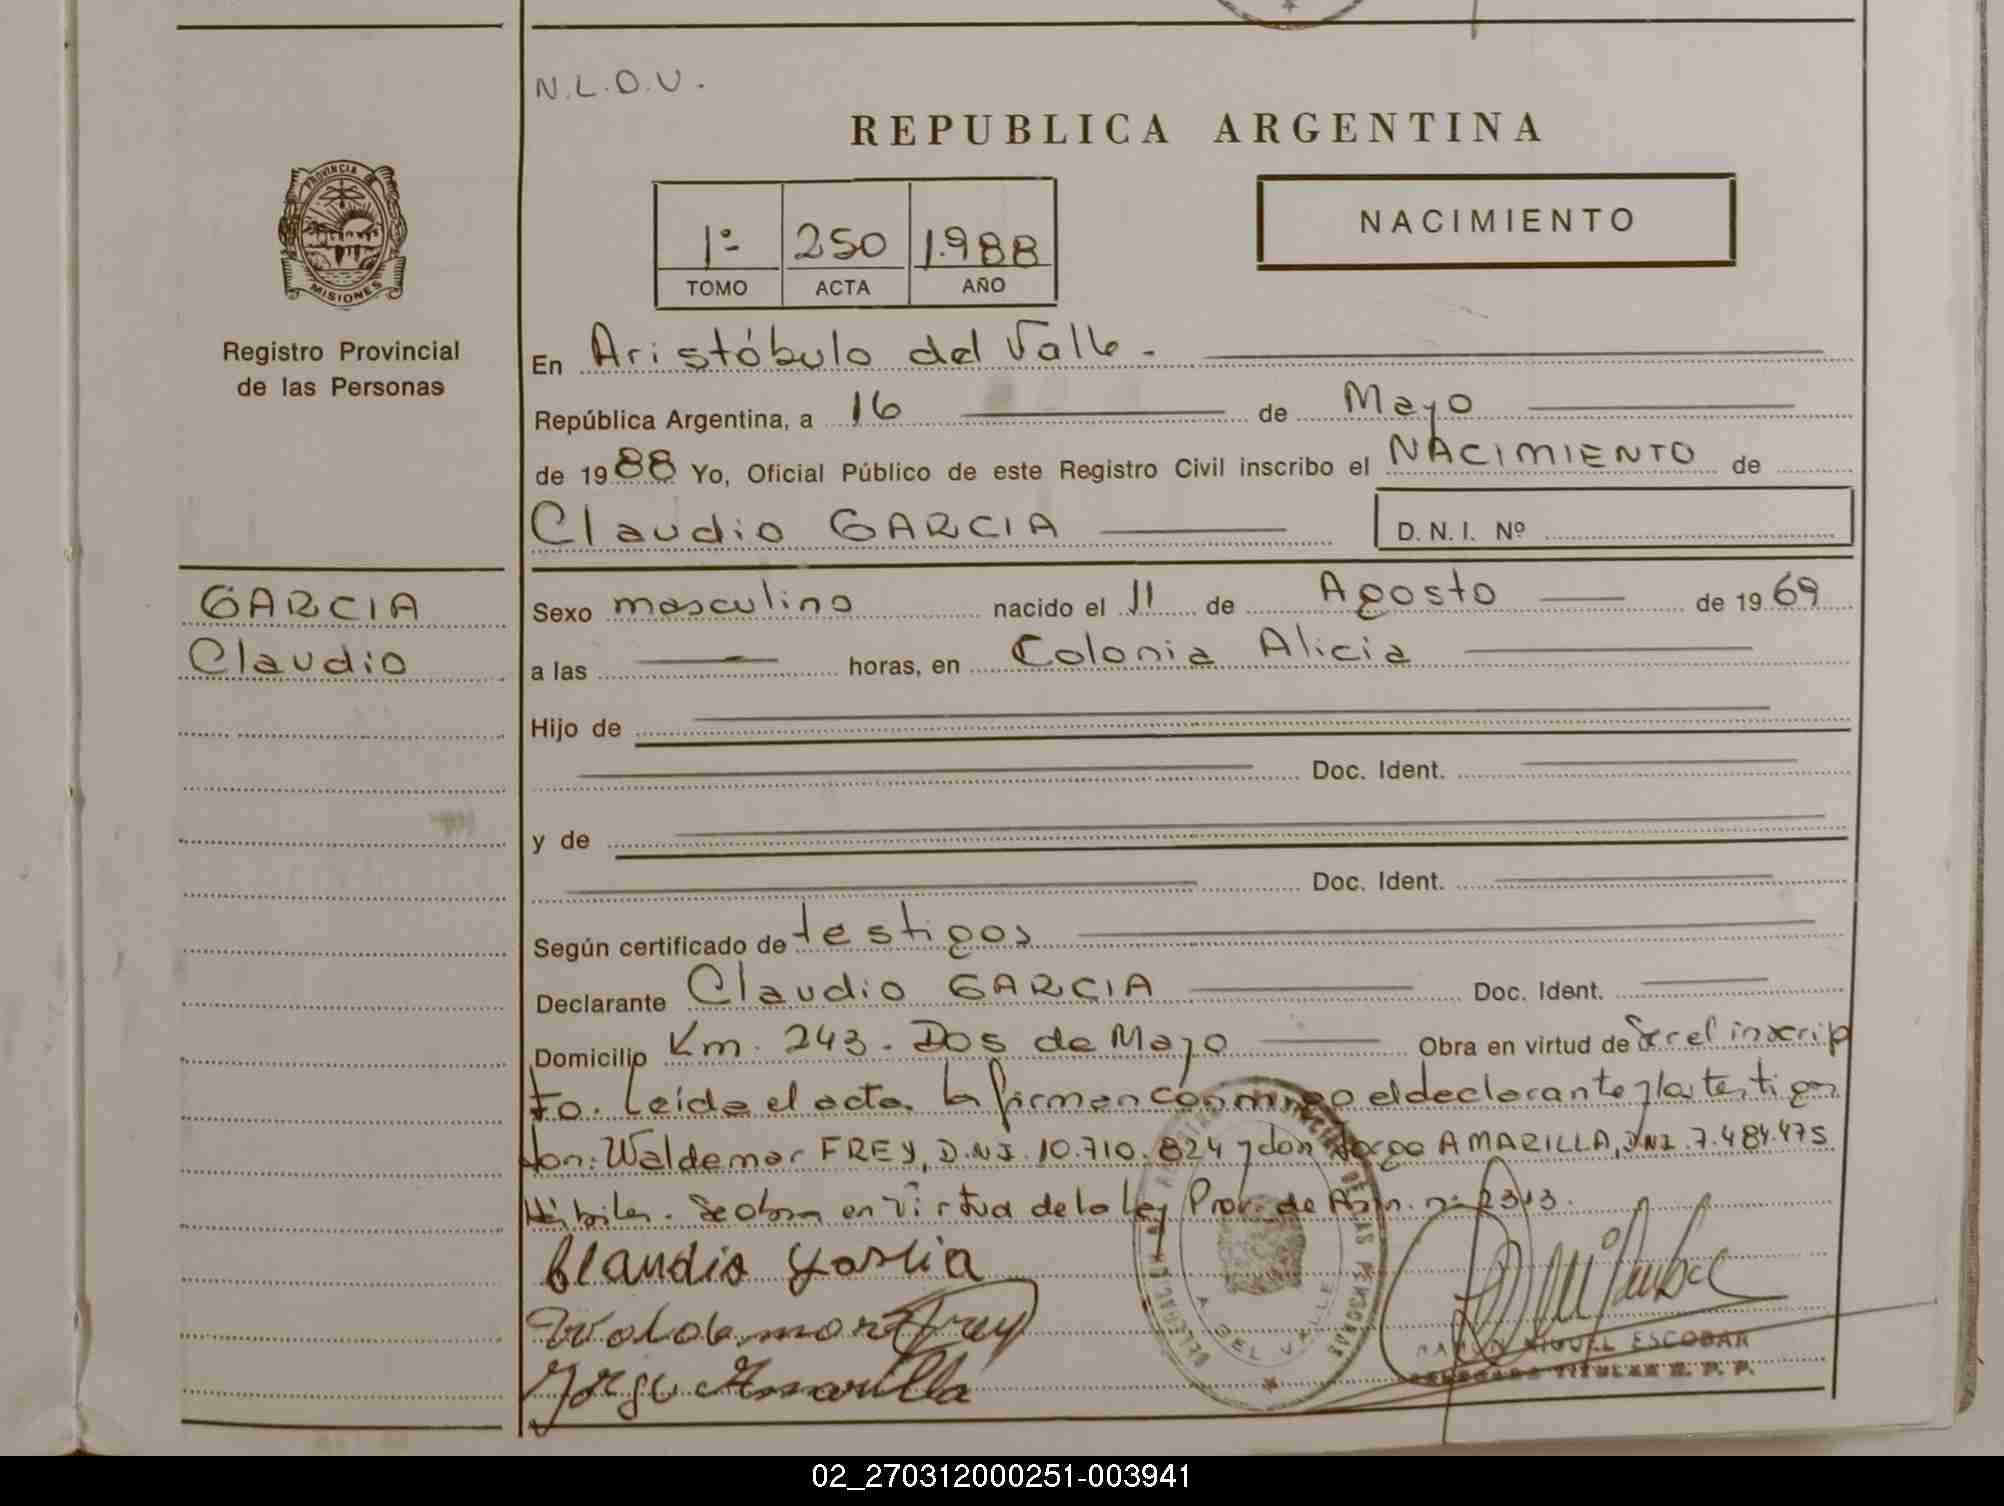 N.L.D.U.
REPUBLICA ARGENTINA
PROVINCIA DE
MISIONES
1º 250 1.988
TOMO ACTA AÑO
NACIMIENTO
Registro Provincial
de las Personas
En Aristóbulo del Valle.
República Argentina, a 16 de Mayo
de 1988 Yo, Oficial Público de este Registro Civil inscribo el NACIMIENTO de
Claudio GARCIA D.N.I. Nº
GARCIA
Claudio
Sexo masculino nacido el 11 de Agosto de 1969
a las horas, en Colonia Alicia
Hijo de
Doc. Ident.
y de
Doc. Ident.
Según certificado de testigos
Declarante Claudio GARCIA Doc. Ident.
Domicilio Km. 243. Dos de Mayo Obra en virtud de Ser el inscrip
to. Leída el acta la firman conmigo el declarante y los testigos
don: Waldemar FREY, D.N.I. 10.710.824 y don Jorge AMARILLA, DNI. 7.484.475
Hábiles. Se obra en virtud de la Ley Prov. de Amn. nº 2313.
Claudio Garcia
Waldemar Frey
Jorge Amarilla
DEL VALLE
DE LAS PERSONAS
RAMON MIGUEL ESCOBAR
DELEGADO TITULAR R. P. P.
02_270312000251-003941